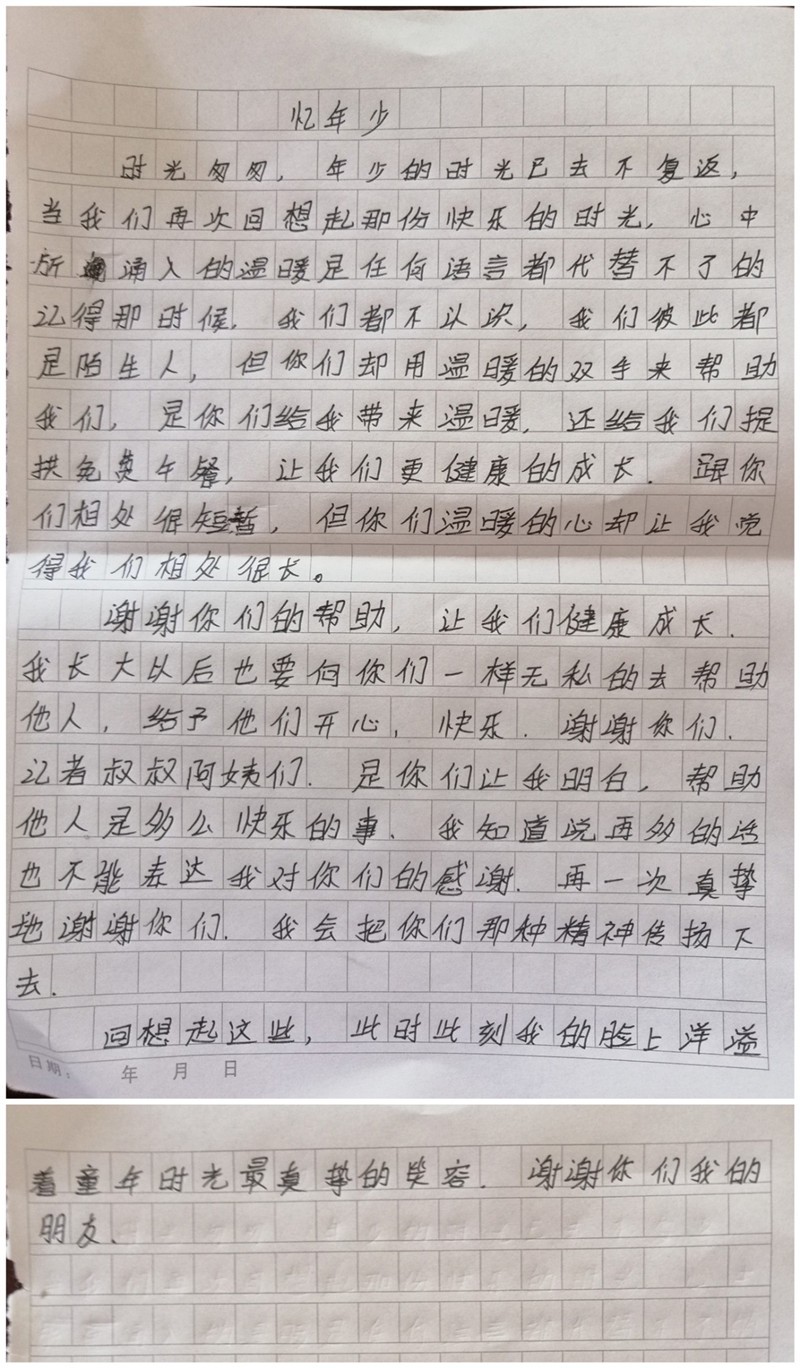 忆年少
时光匆匆，年少的时光已去不复返，
当我们再次回想起那份快乐的时光，心中
所涌入的温暖是任何语言都代替不了的
记得那时候，我们都不认识，我们彼此都
是陌生人，但你们却用温暖的双手来帮助
我们，是你们给我带来温暖，还给我们提
拱免费午餐，让我们更健康的成长．跟你
们相处很短暂，但你们温暖的心却让我觉
得我们相处很长。
谢谢你们的帮助，让我们健康成长．
我长大以后也要向你们一样无私的去帮助
他人，给予他们开心，快乐．谢谢你们．
记者叔叔阿姨们．是你们让我明白，帮助
他人是多么快乐的事．我知道说再多的话
也不能表达我对你们的感谢．再一次真挚
地谢谢你们．我会把你们那种精神传扬下
去．
回想起这些，此时此刻我的脸上洋溢
日期：年 月 日
着童年时光最真挚的笑容．谢谢你们我的
朋友．